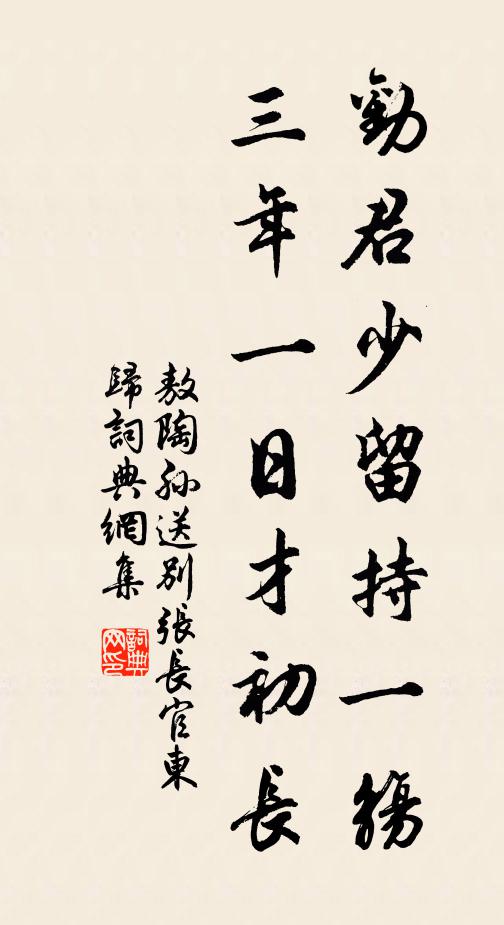 勸君少留持一觴
三年一日才初長
敖陶孫送別張長官東
歸詞典網集
詞典網印